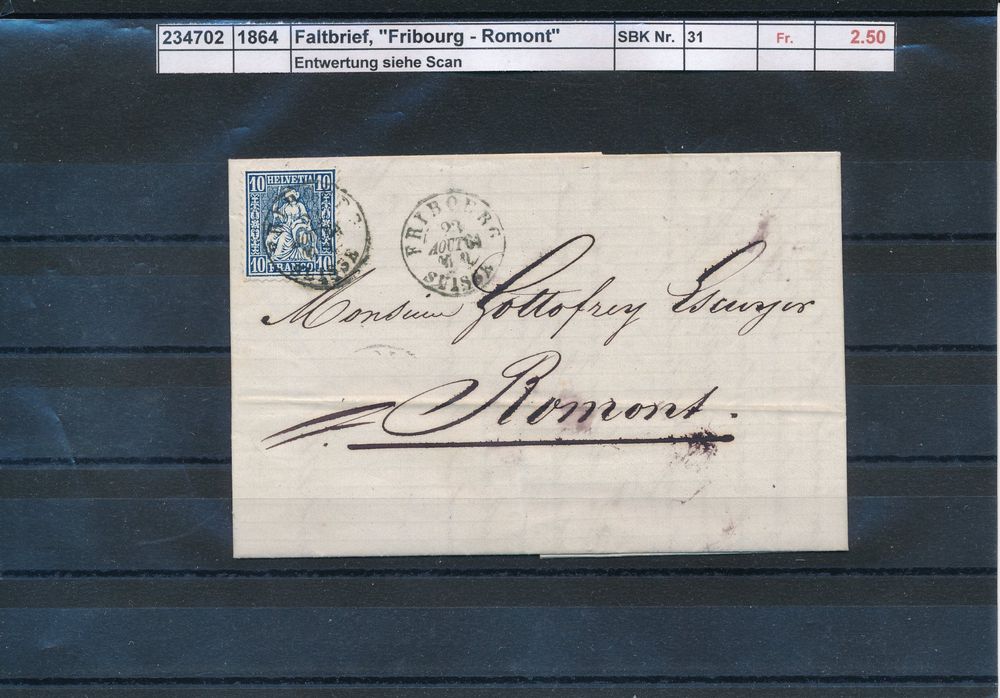 234702 1864 Faltbrief, "Fribourg - Romont" SBK Nr. 31 Fr. 2.50
Entwertung siehe Scan
10 HELVETIA 10
10 FRANCO 10
FRIBOURG
23
AOUT 64
SUISSE
Monsieur Gottofrey
Romont.